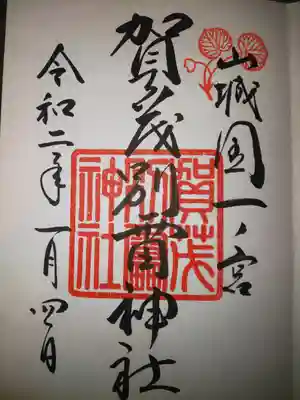 山城国一ノ宮
賀茂別雷神社
賀茂
別雷
神社
令和二年一月四日